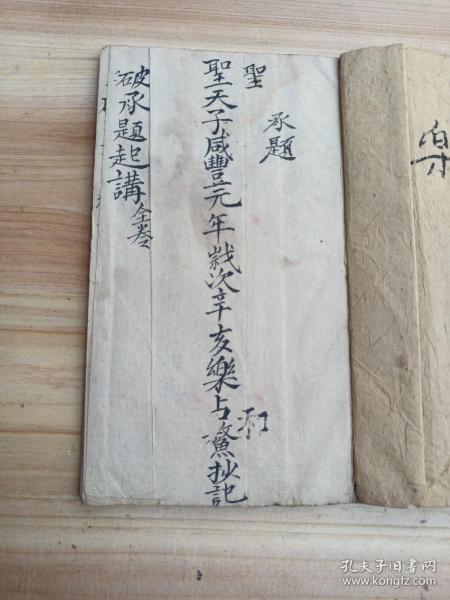 樂
聖
承題
聖天子咸豐元年歲次辛亥樂占鰲抄記
和
破承題起講全卷
孔夫子旧书网
www.kongfz.com